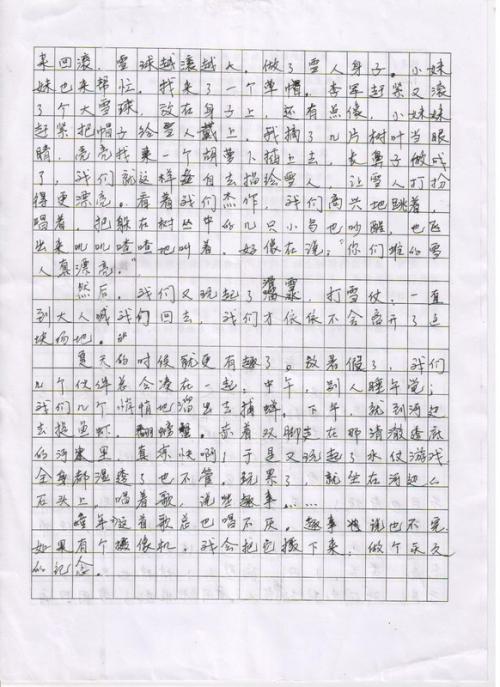 来回滚，雪球越滚越大。做了雪人身子。小妹
妹也来帮忙，找来了一个草帽。李军赶紧又滚
了个大雪球，放在身子上，还有点像，小妹妹
赶紧把帽子给雪人戴上。我摘了几片树叶当眼
睛，亮亮找来一个胡萝卜插上去，长鼻子做成
了，我们就这样各自去描绘雪人，让雪人打扮
得更漂亮。看着我们杰作，我们高兴地跳着，
唱着，把躲在树丛中的几只小鸟也吵醒，也飞
出来叽叽喳喳地叫着，好像在说："你们堆的雪
人真漂亮。"
然后，我们又玩起了滑雪，打雪仗，一直
到大人喊我们回去，我们才依依不舍离开了这
块场地。
夏天的时候就更有趣了。放暑假了，我们
几个伙伴总会凑在一起，中午，别人睡午觉；
我们几个悄悄地溜出去捕蝉。下午，就到河边
去捉鱼虾，螃蟹。赤着双脚走在那清澈透底
的河水里，真凉快啊！于是又玩起了水仗游戏
全身都湿透了也不管。玩累了，就坐在河边
石头上，唱着歌，说些趣事……
童年这首歌总也唱不厌。趣事说也不完
如果有个摄像机，我会把它摄下来，做个永久
的记念。